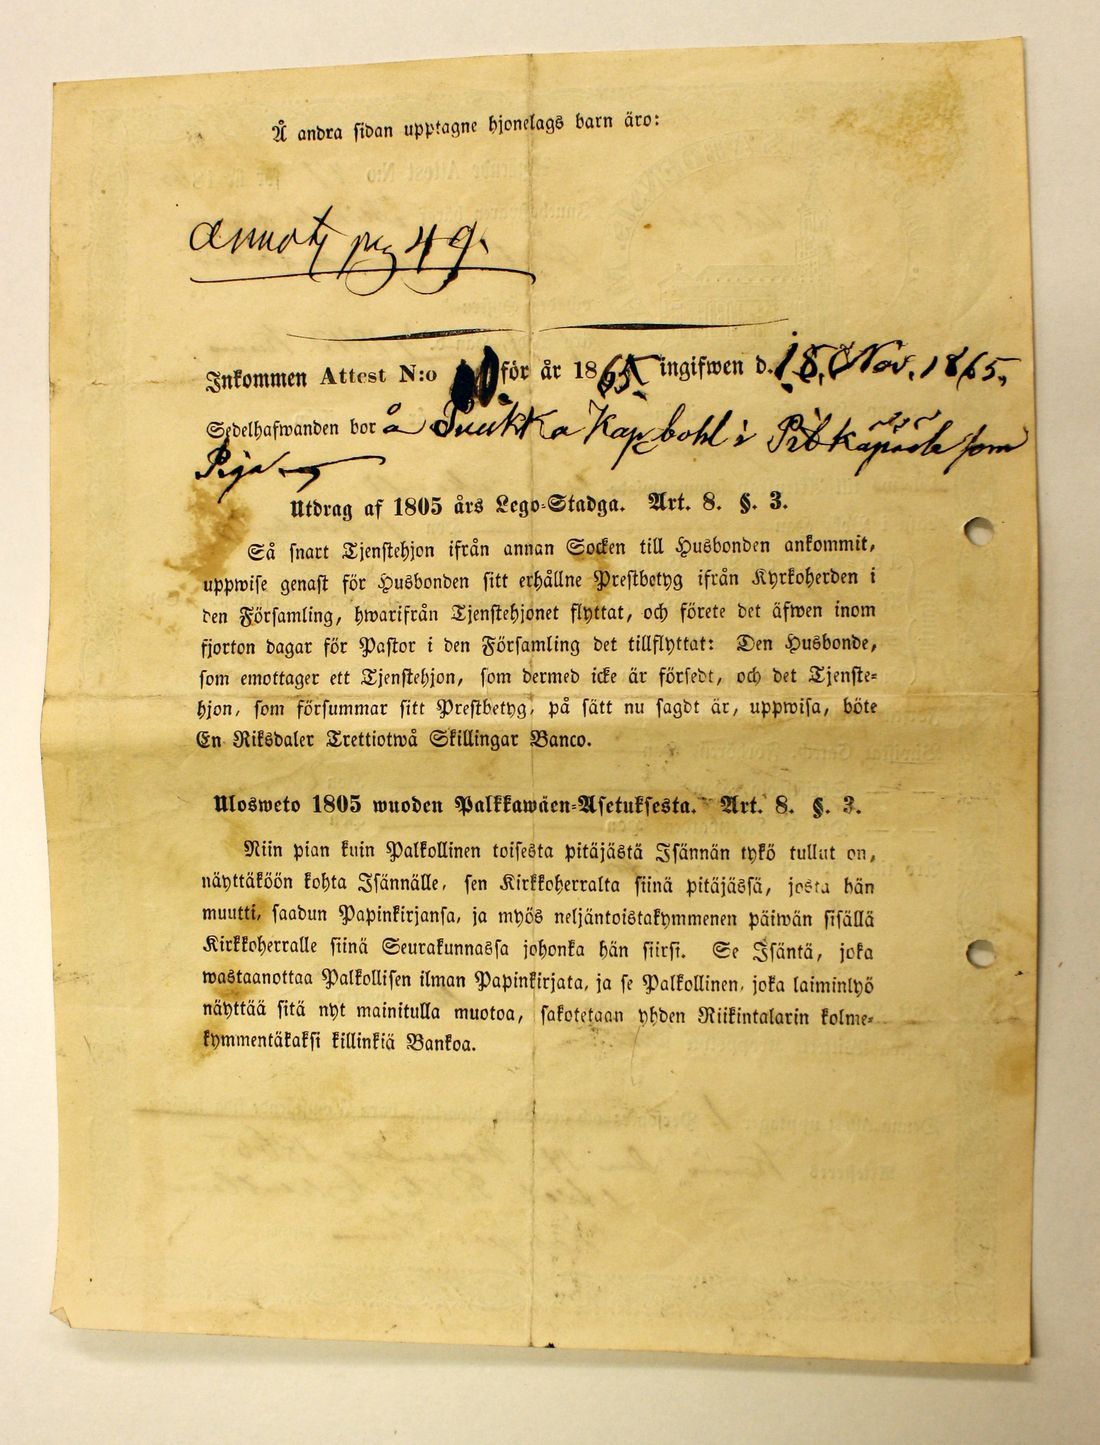 Å andra sidan upptagne hjonelags barn äro:
annot pag 49.
Inkommen Attest N:o för år 1865. ingifwen d. 18. Nov. 1865.
Sedelhafwanden bor å Puukka Kap bohl i som
Piga
Utdrag af 1805 års Lego-Stadga. Art. 8. §. 3.
Så snart Tjenstehjon ifrån annan Socken till Husbonden ankommit,
uppwise genast för Husbonden sitt erhållne Prestbetyg ifrån Kyrkoherden i
den Församling, hwarifrån Tjenstehjonet flyttat, och förete det äfwen inom
fjorton dagar för Pastor i den Församling det tillflyttat: Den Husbonde,
som emottager ett Tjenstehjon, som dermed icke är försedt, och det Tjenste-
hjon, som försummar sitt Prestbetyg, på sätt nu sagdt är, uppwisa, böte
En Riksdaler Trettiotwå Skillingar Banco.
Ulosweto 1805 wuoden Palkkawäen-Asetuksesta. Art. 8. §. 3.
Niin pian kuin Palkollinen toisesta pitäjästä Isännän tykö tullut on,
näyttäköön kohta Isännälle, sen Kirkkoherralta siinä pitäjässä, josta hän
muutti, saadun Papinkirjansa, ja myös neljäntoistakymmenen päiwän sisällä
Kirkkoherralle siinä Seurakunnassa johonka hän siirsi. Se Isäntä, joka
wastaanottaa Palkollisen ilman Papinkirjata, ja se Palkollinen, joka laiminlyö
näyttää sitä nyt mainitulla muotoa, sakotetaan yhden Riikintalarin kolme-
kymmentäkaksi killinkiä Bankoa.